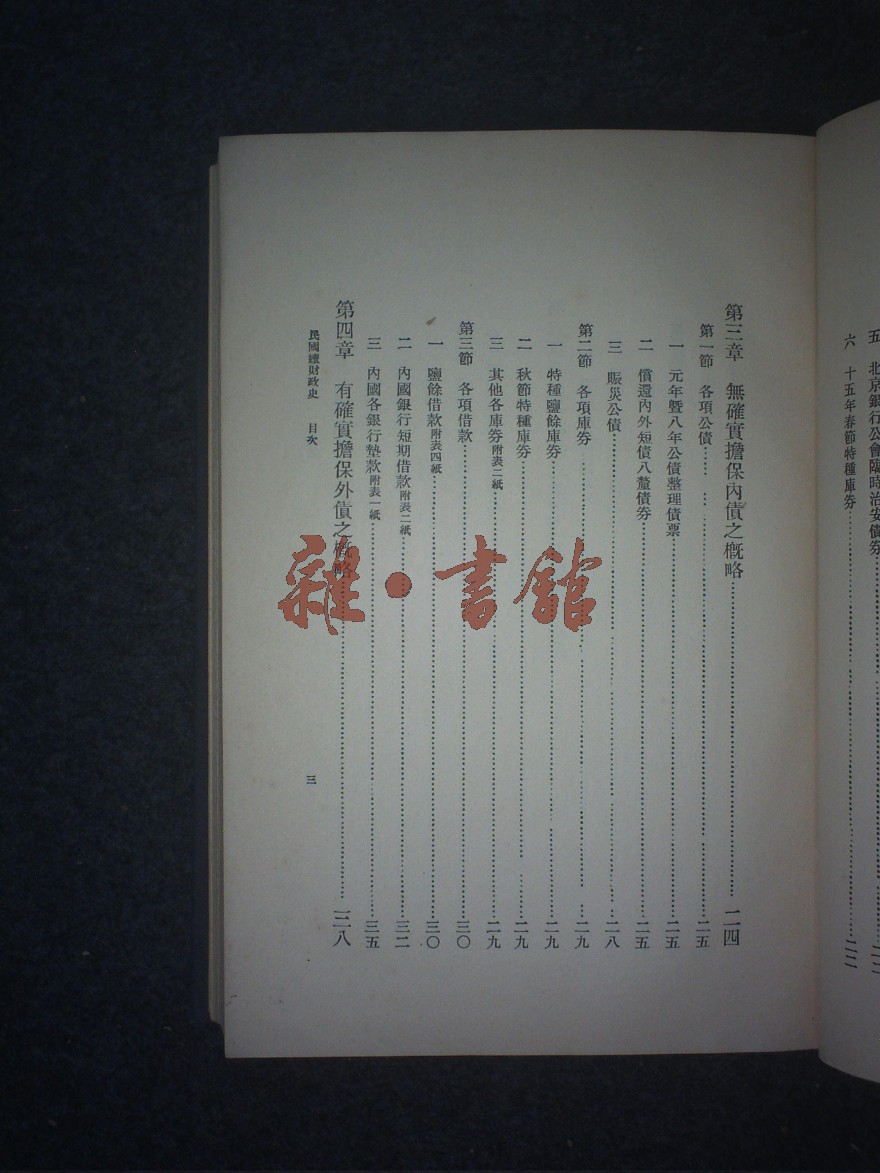 五 北京銀行公會臨時治安債券
六 十五年春節特種庫券……二二
第三章 無確實擔保內債之概略……二四
第一節 各項公債……二五
一 元年暨八年公債整理債票……二五
二 償還內外短債八釐債券……二五
三 賑災公債……二八
第二節 各項庫券……二九
一 特種鹽餘庫券……二九
二 秋節特種庫券……二九
三 其他各庫券附表二紙……二九
第三節 各項借款……三〇
一 鹽餘借款附表四紙……三〇
二 內國銀行短期借款附表二紙……三二
三 內國各銀行墊款附表一紙……三五
第四章 有確實擔保外債之概略……三八
民國續財政史 目次 三
雜·書館